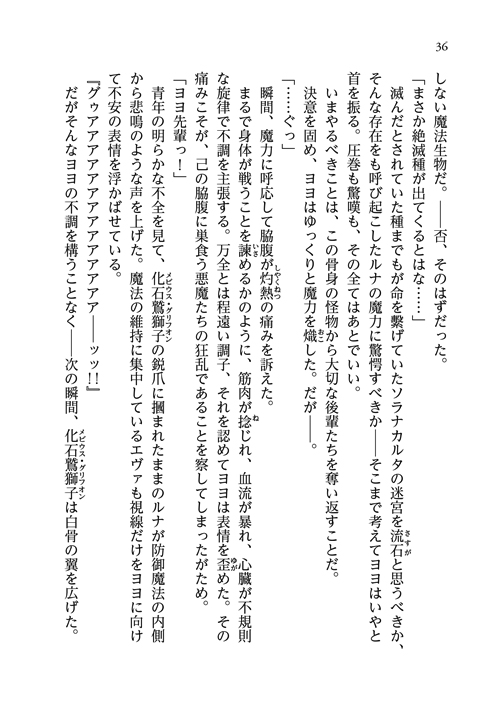 36
しない魔法生物だ。――否、そのはずだった。
「まさか絶滅種が出てくるとはな……」
滅んだとされていた種までもが命を繋げていたソラナカルタの迷宮を流石と思うべきか、
そんな存在をも呼び起こしたルナの魔力に驚愕すべきか――そこまで考えてヨヨはいやと
首を振る。圧巻も驚嘆も、その全てはあとでいい。
いまやるべきことは、この骨身の怪物から大切な後輩たちを奪い返すことだ。
決意を固め、ヨヨはゆっくりと魔力を熾した。だが――。
「……ぐっ」
瞬間、魔力に呼応して脇腹が灼熱の痛みを訴えた。
まるで身体が戦うことを諫めるかのように、筋肉が捻じれ、血流が暴れ、心臓が不規則
な旋律で不調を主張する。万全とは程遠い調子、それを認めてヨヨは表情を歪めた。その
痛みこそが、己の脇腹に巣食う悪魔たちの狂乱であることを察してしまったがため。
「ヨヨ先輩っ！」
青年の明らかな不全を見て、化石鷲獅子の鋭爪に摑まれたままのルナが防御魔法の内側
から悲鳴のような声を上げた。魔法の維持に集中しているエヴァも視線だけをヨヨに向け
て不安の表情を浮かばせている。
『グゥアアアアアアアアアアアアア――ッッ!!』
だがそんなヨヨの不調を構うことなく――次の瞬間、化石鷲獅子は白骨の翼を広げた。